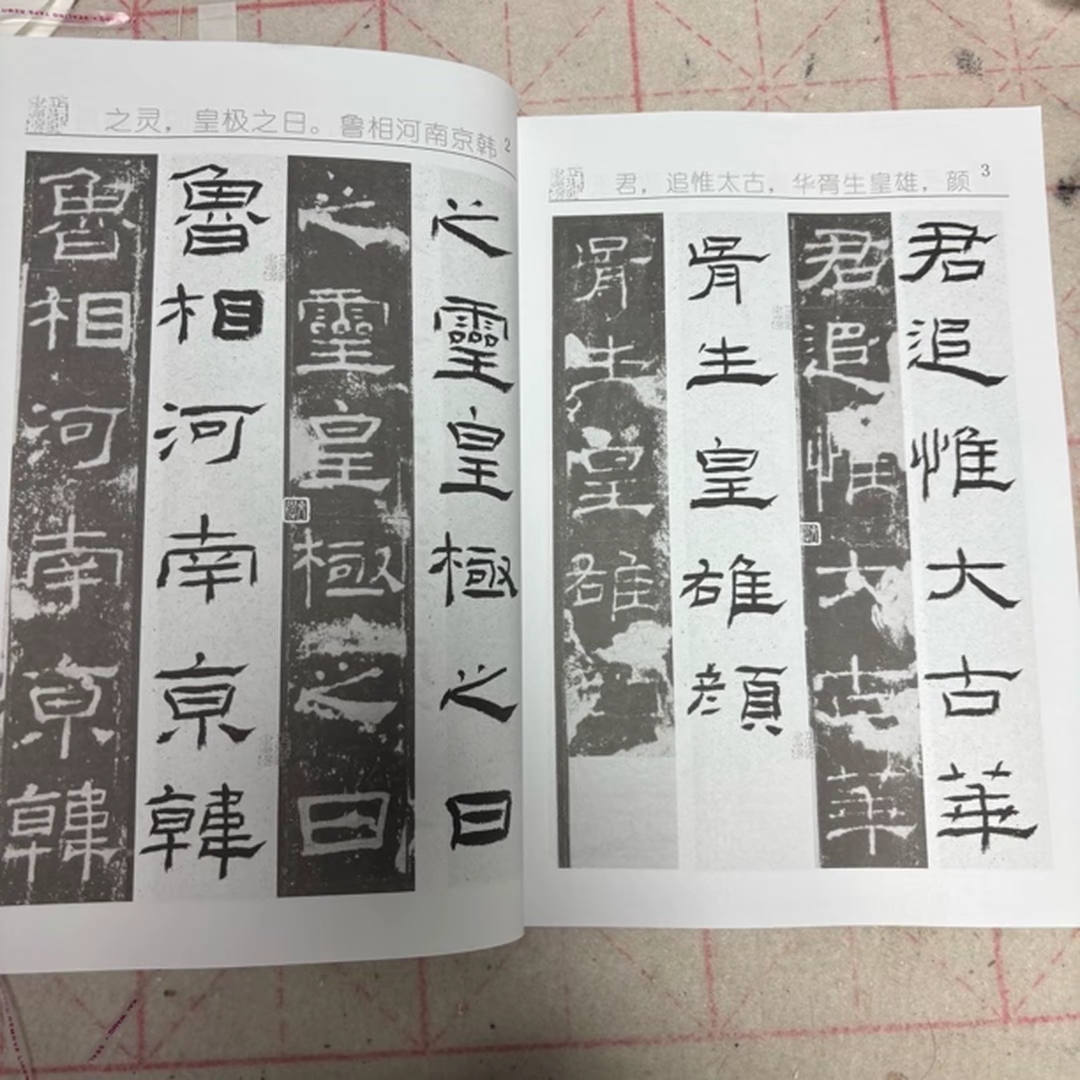 之灵，皇极之日。鲁相河南京韩
2
之靈皇極之日
之靈皇極之日
魯相河南京韓
魯相河南京韓
君，追惟太古，华胥生皇雄，颜
3
君追惟大古華
君追惟大古華
胥生皇雄顏
胥生皇雄